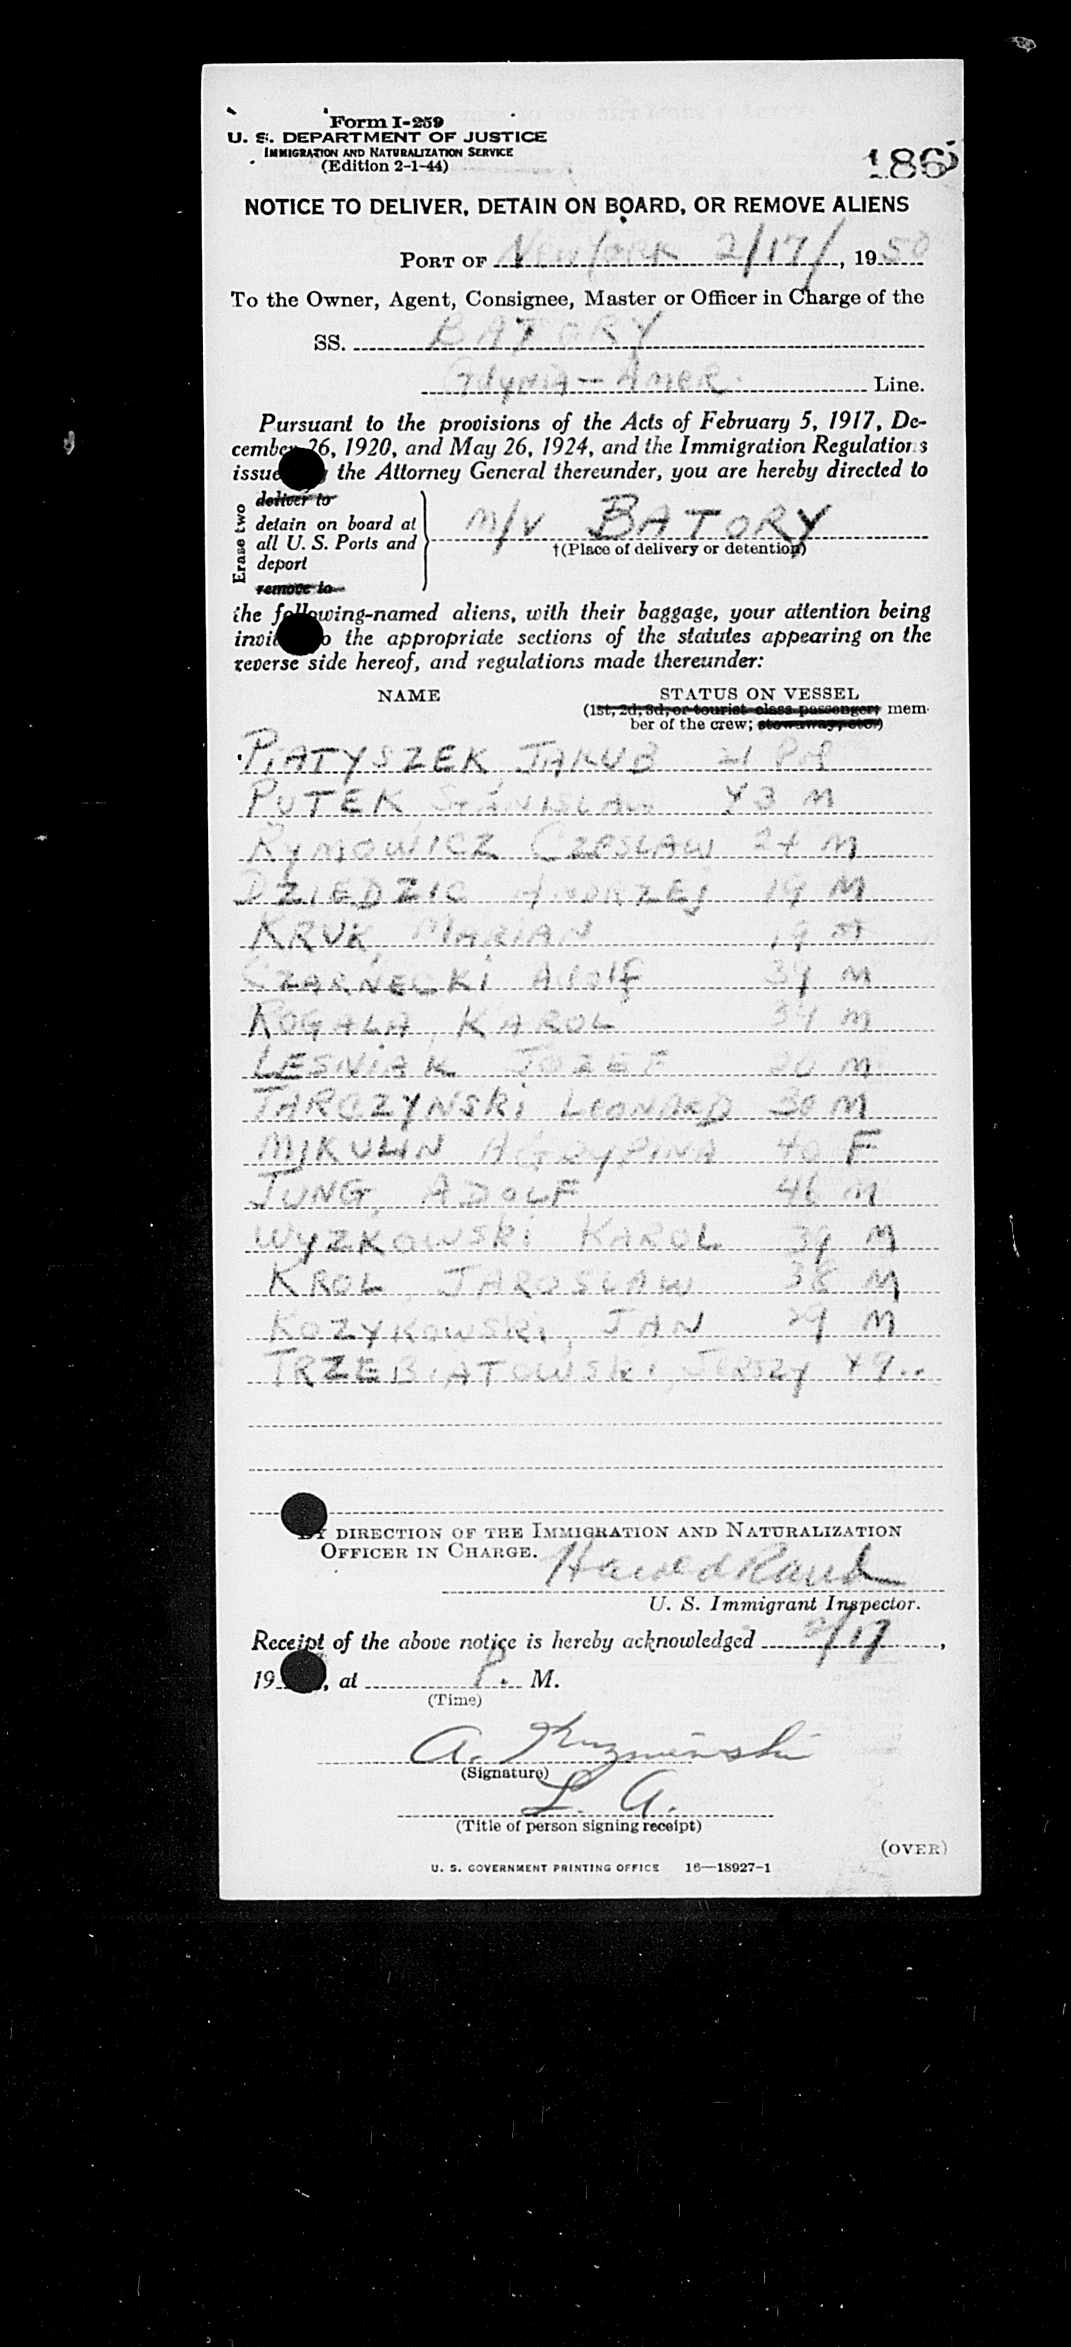 Form I-259
U. S. DEPARTMENT OF JUSTICE
IMMIGRATION AND NATURALIZATION SERVICE
(Edition 2-1-44)
186
NOTICE TO DELIVER, DETAIN ON BOARD, OR REMOVE ALIENS
PORT OF New York 2/17/, 1950
To the Owner, Agent, Consignee, Master or Officer in Charge of the
SS. BATORY
Gdynia - Amer. Line.
Pursuant to the provisions of the Acts of February 5, 1917, De-
cember 26, 1920, and May 26, 1924, and the Immigration Regulations
issued the Attorney General thereunder, you are hereby directed to
Erase two
deliver to
detain on board at
all U. S. Ports and
deport
remove to
M/V BATORY
†(Place of delivery or detention)
the following-named aliens, with their baggage, your attention being
invited to the appropriate sections of the statutes appearing on the
reverse side hereof, and regulations made thereunder:
NAME STATUS ON VESSEL
(1st, 2d, 3d, or tourist class passenger; mem-
ber of the crew; stowaway, etc.)
PIATYSZEK, JAKUB 21 Pol
PUTEK STANISLAW 43 M
RYMOWICZ CZESLAW 24 M
DZIEDZIC ANDRZEJ 19 M
KRUK, MARIAN 19 M
CZARNECKI Adolf 39 M
ROGALA, KAROL 34 M
LESNIAK JOZEF 20 M
TARCZYNSKI LEONARD 30 M
MIKULIN AGRYPINA 40 F
JUNG, ADOLF 46 M
WYZKOWSKI KAROL 39 M
KROL, JAROSLAW 38 M
KOZYKOWSKI, JAN 29 M
TRZEBIATOWSKI, JERZY 49
BY DIRECTION OF THE IMMIGRATION AND NATURALIZATION
OFFICER IN CHARGE.
Harold Rand
U. S. Immigrant Inspector.
Receipt of the above notice is hereby acknowledged 2/17,
19, at P. M.
(Time)
A. Kuzminski
(Signature)
L. A.
(Title of person signing receipt)
(OVER)
U. S. GOVERNMENT PRINTING OFFICE 16—18927-1